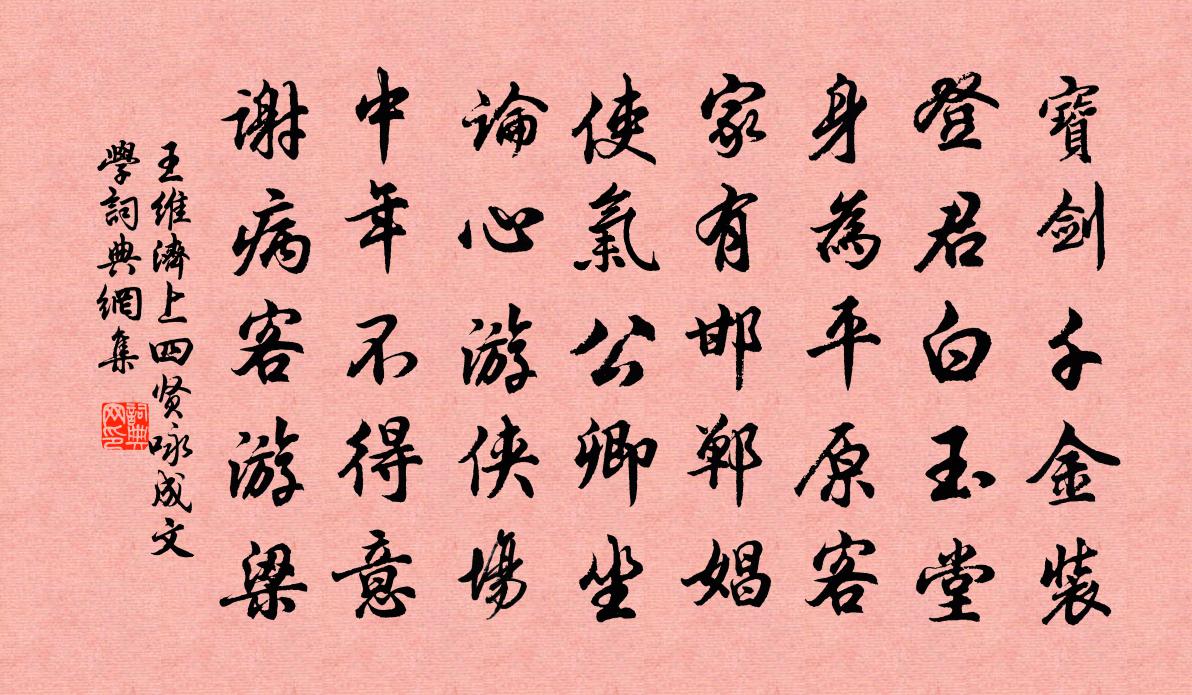 寶劍千金裝
登君白玉堂
身為平原客
家有邯鄲娼
使氣公卿坐
論心游俠場
中年不得意
謝病客游梁
王維濟上四贤咏成文
學詞典網集
詞典
网印